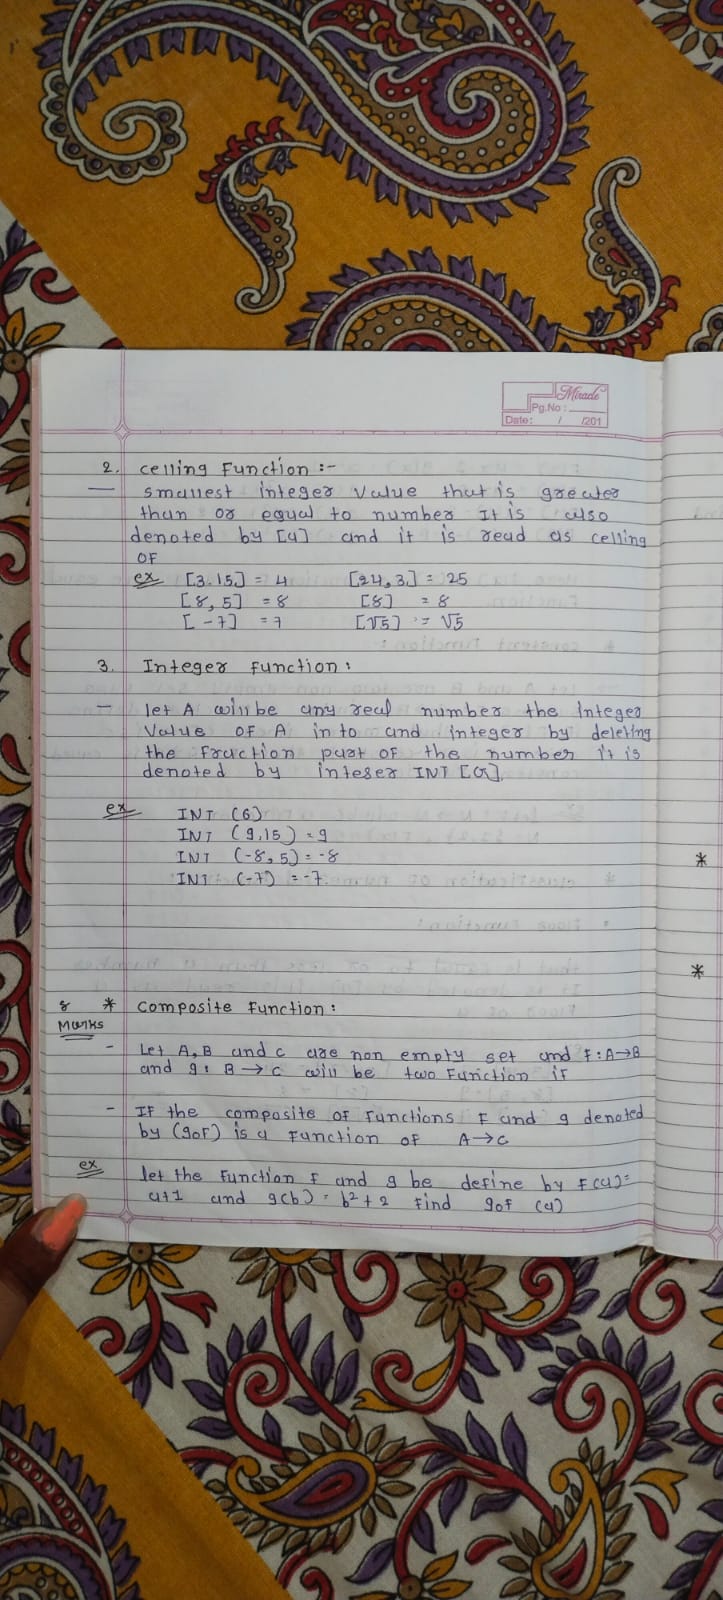 Mirade
Pg.No:
Date: / /201
2. celling Function :-
— smallest integer value that is greater
than or equal to number It is also
denoted by [a] and it is read as celling
OF
ex [3.15] = 4 [24,3.] = 25
[8,5] = 8 [8] = 8
[-7] = 7 [√5] = √5
3. Integer Function :
— let A will be any real number the integer
value OF A in to and integer by deleting
the fraction part OF the number it is
denoted by inteser INT [a].
ex INT (6)
INT (9.15) = 9
INT (-8,5) = -8
INT (-7) = -7.
*
*
8 * Composite Function :
Marks
- Let A, B and c are non empty set and F : A→B
and g : B → C will be two Function if
- IF the composite of Functions F and g denoted
by (goF) is a Function of A→C
ex let the Function F and g be define by F(a) =
a+1 and g(b) = b²+2 Find goF (a)